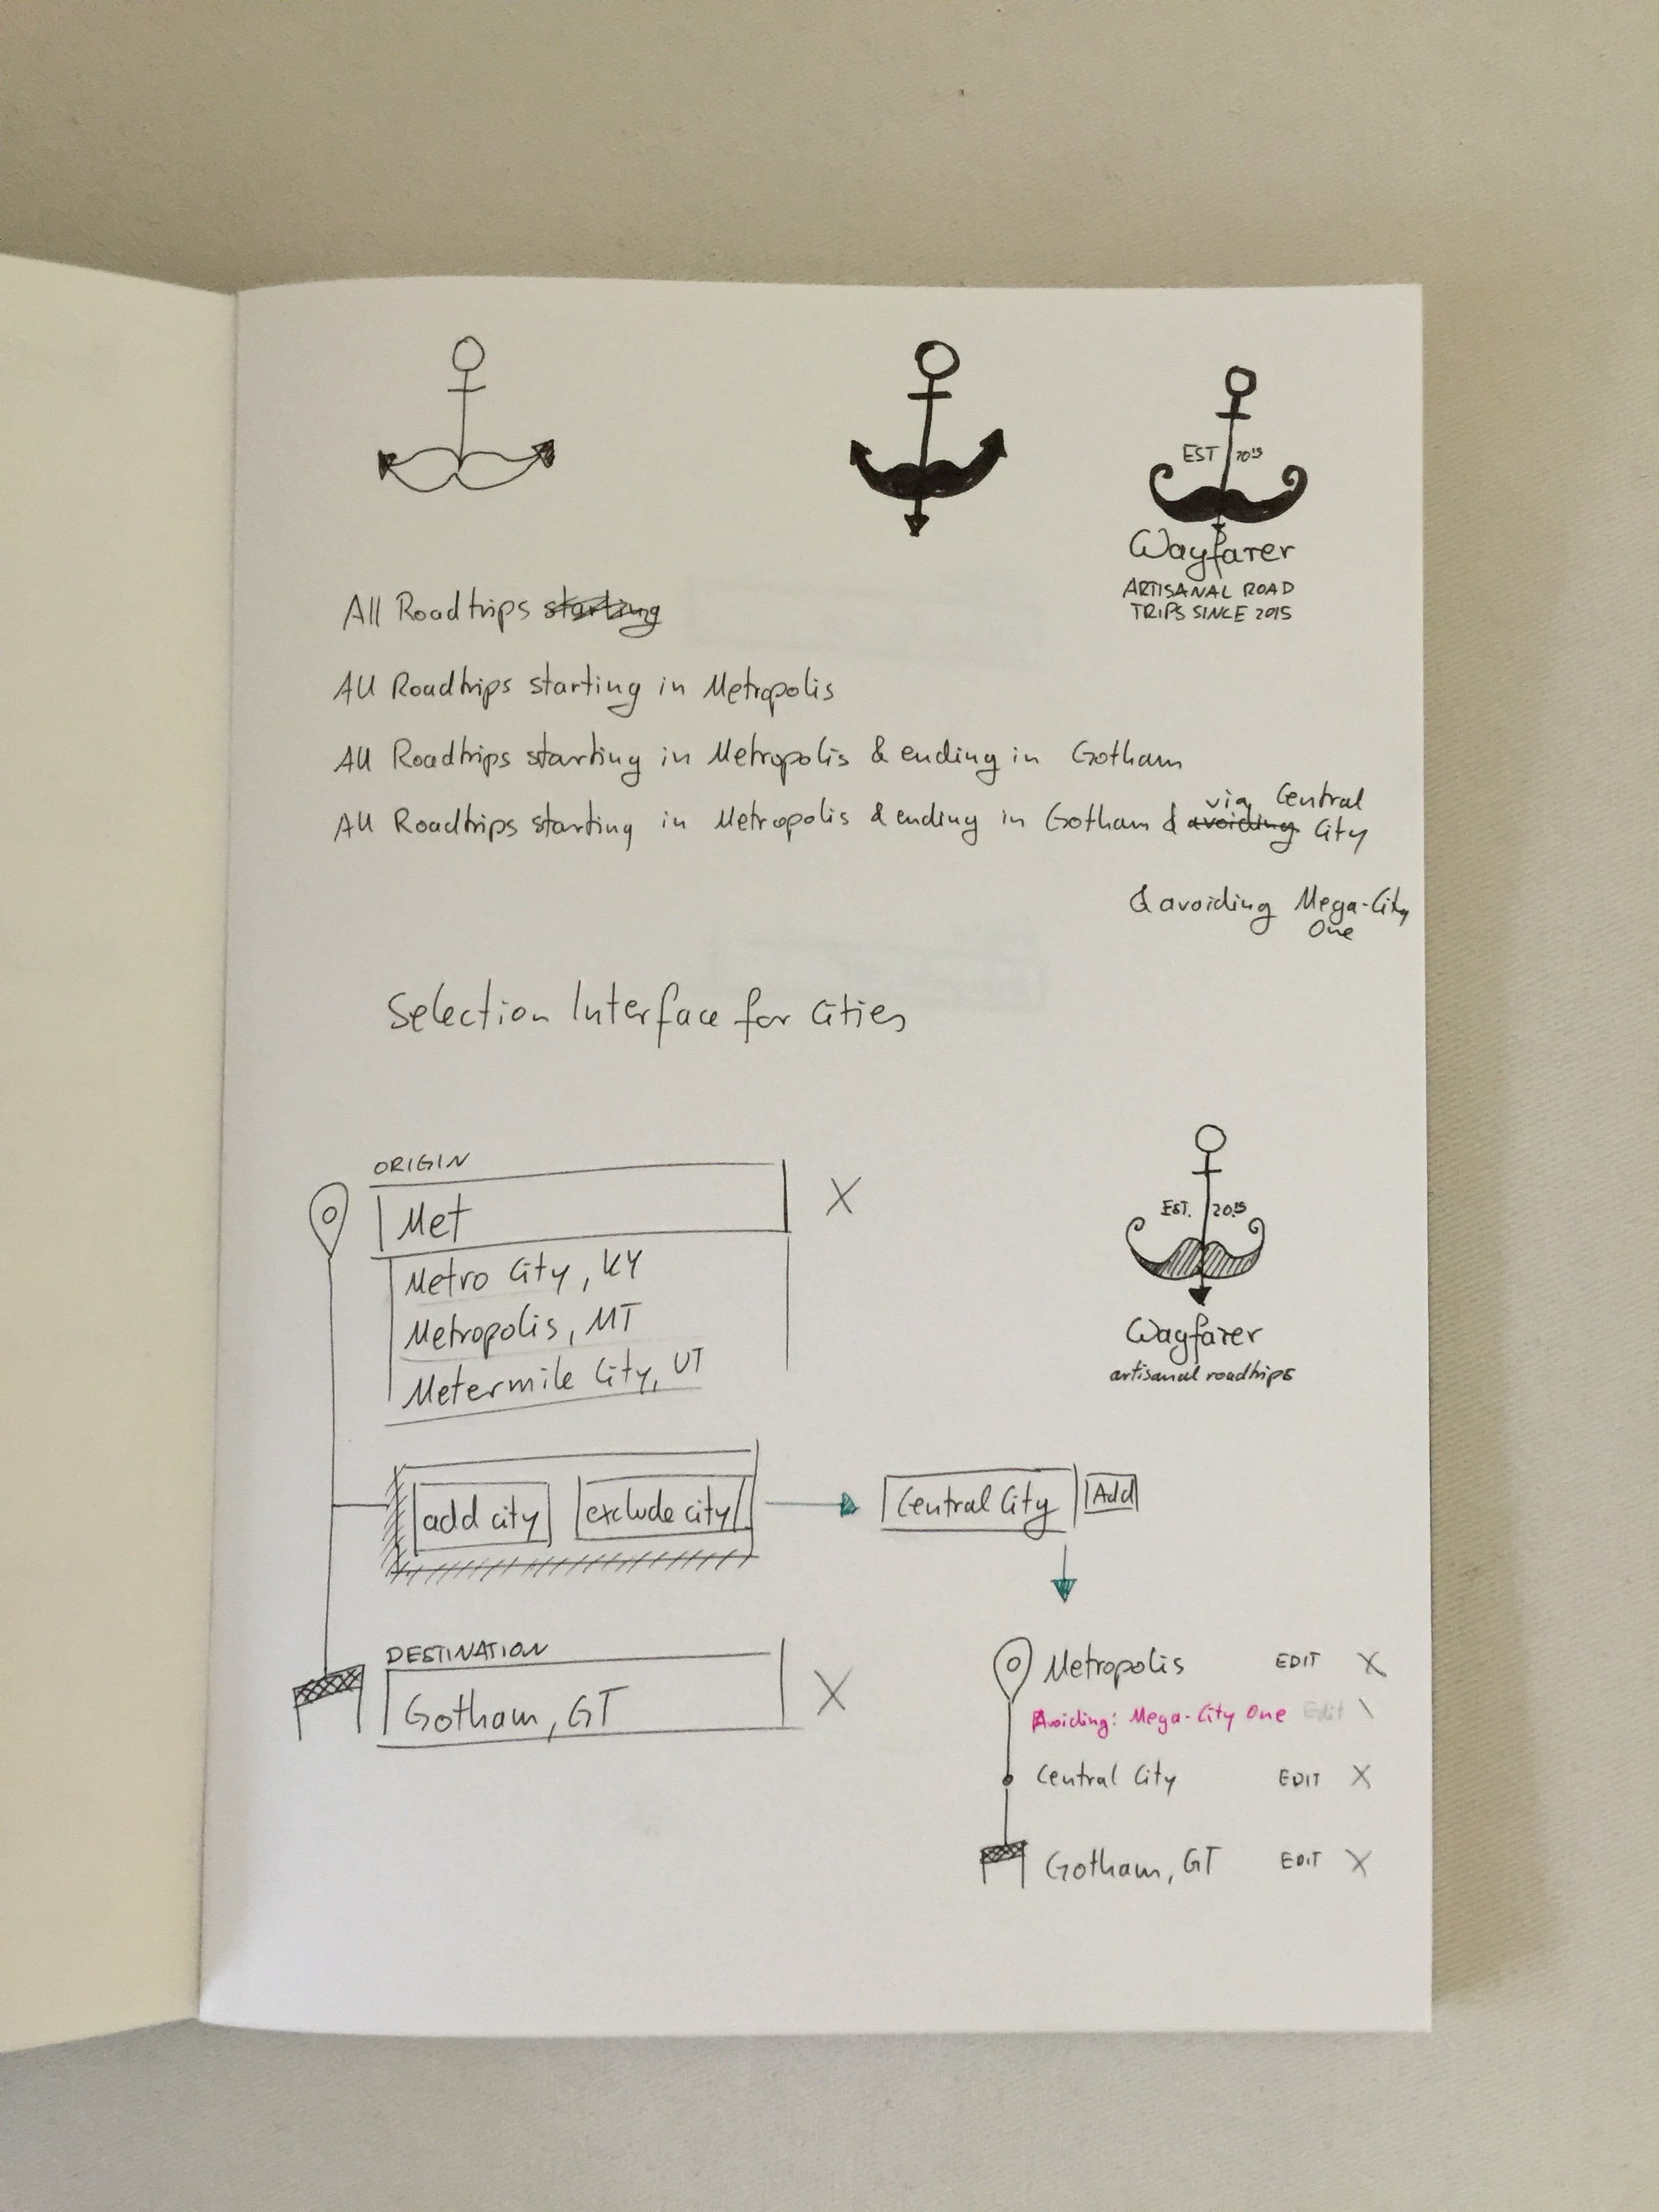 EST 2015
Wayfarer
ARTISANAL ROAD
TRIPS SINCE 2015
All Roadtrips starting
All Roadtrips starting in Metropolis
All Roadtrips starting in Metropolis & ending in Gotham
All Roadtrips starting in Metropolis & ending in Gotham & avoiding via Central City
& avoiding Mega-City
One
Selection Interface for Cities
ORIGIN
Met X
Metro City, KY
Metropolis, MT
Metermile City, UT
EST. 2015
Wayfarer
artisanal roadtrips
add city exclude city Central City Add
DESTINATION
Gotham, GT X
Metropolis EDIT X
Avoiding: Mega-City One Edit \
Central City EDIT X
Gotham, GT EDIT X